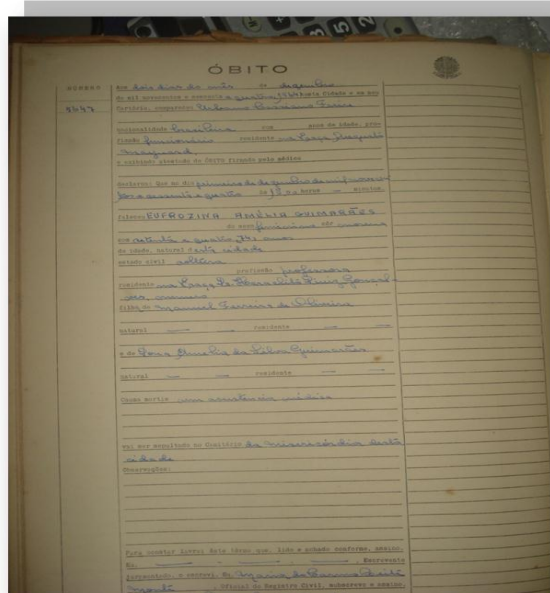 ÓBITO
NÚMERO
1447
Aos dois dias do mês de dezembro
de mil novecentos e sessenta e quatro (1964) nesta Cidade e em meu
Cartório, compareceu
nacionalidade brasileira com anos de idade, pro-
fissão funcionário residente na Praça
e exibindo atestado de Óbito firmado pelo médico
declarou: Que no dia primeiro de dezembro de mil novecen-
tos e sessenta e quatro às 15 horas minutos,
faleceu EUFROZINA AMÉLIA GUIMARÃES
do sexo feminino côr morena
com setenta e quatro (74) anos
de idade, natural desta cidade
estado civil solteira
profissão professora
residente na Praça
filha de Manuel Ferreira de Oliveira
natural residente
e de Dona Amelia da Silva Guimarães
natural residente
Causa mortis sem assistencia médica
vai ser sepultado no Cemitério da Misericórdia desta
cidade
Observações:
Para constar lavrei êste têrmo que, lido e achado conforme, assino.
Eu, , Escrevente
juramentado, o escrevi. Eu
, Oficial do Registro Civil, subscrevo e assino.